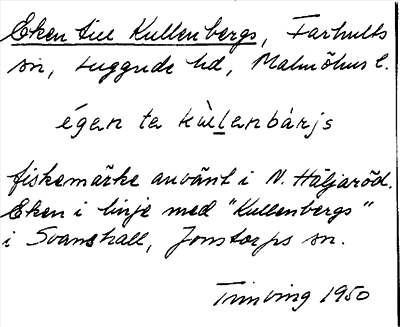 Eken till Kullenbergs, Farhults
sn, Luggude hd, Malmöhus l.
égan ta kùḷanbàrjs
fiskemärke använt i N. Häljaröd.
Eken i linje med "Kullenbergs"
i Svanshall, Jonstorps sn.
1950